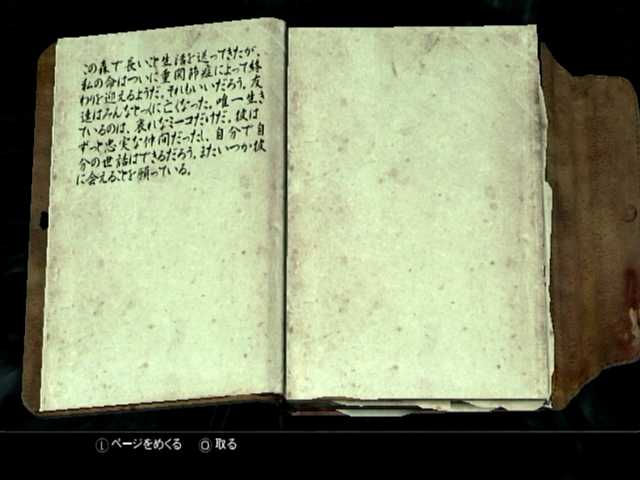 この森で長いこと生活を送ってきたが、
私の命はついに重関節症によって終
わりを迎えるようだ。それもいいだろう。友
達はみんなとっくに亡くなった。唯一生き
ているのは、哀れなミーコだけだ。彼は
ずっと忠実な仲間だったし、自分で自
分の世話はできるだろう。またいつか彼
に会えることを願っている。
Ⓛ ページをめくる ⭘ 取る